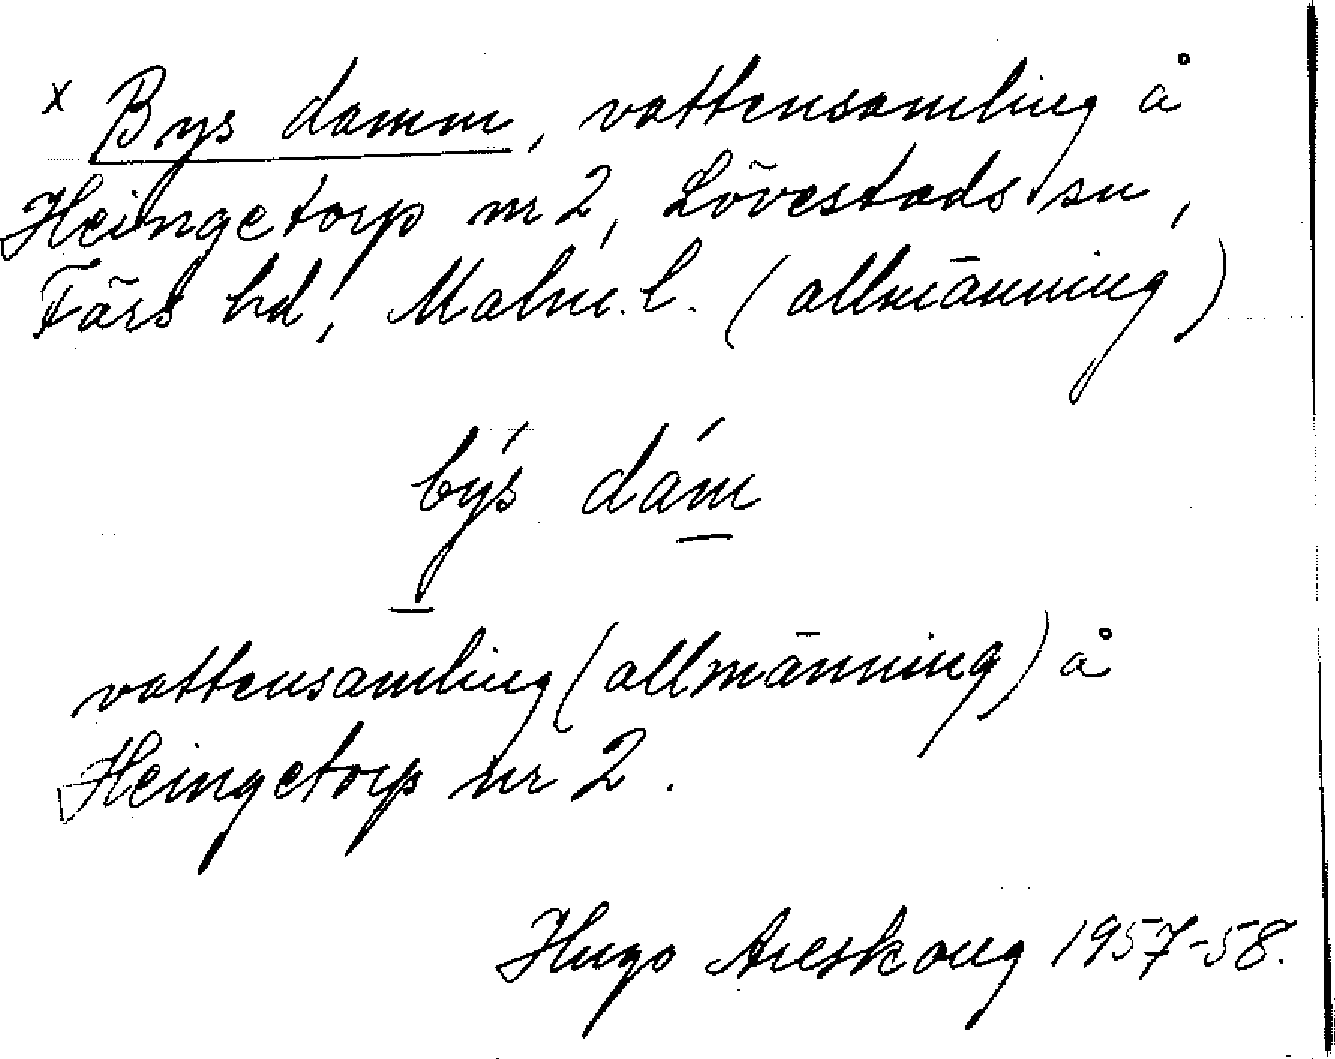 x Bys damm, vattensamling å
Heingetorp nr 2, Lövestads sn,
Färs hd, Malm. l. (allmänning)
býs dám
vattensamling (allmänning) å
Heingetorp nr 2.
Hugo Areskoug 1957-58.